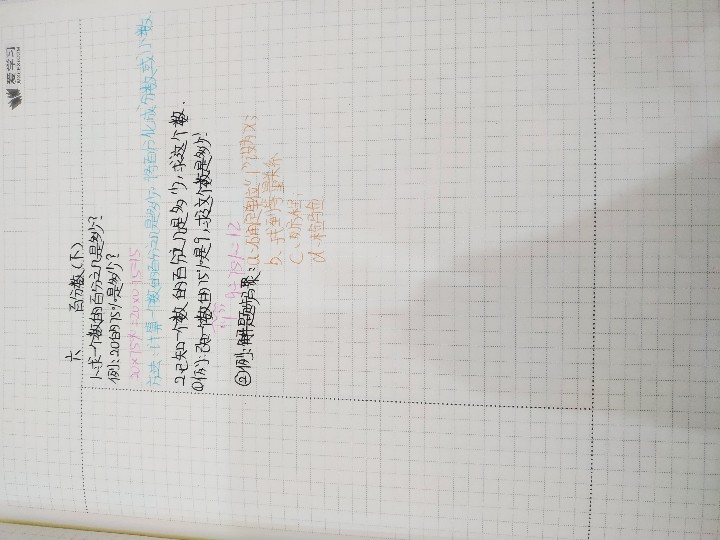 爱学习
六 百分数(下)
1.求一个数的百分之几是多少?
例:20的75%是多少?
20×75%=20×0.75=15
方法:计算一个数的百分之几是多少,将百分化成分数或小数.
2.已知一个数的百分之几是多少,求这个数.
①例:已知一个数的75%是9,求这个数是多少?
9÷75%=12
②例:解题步骤:a.确定单位"1",设为x;
b.找到等量关系
c.列方程,
d.求单位